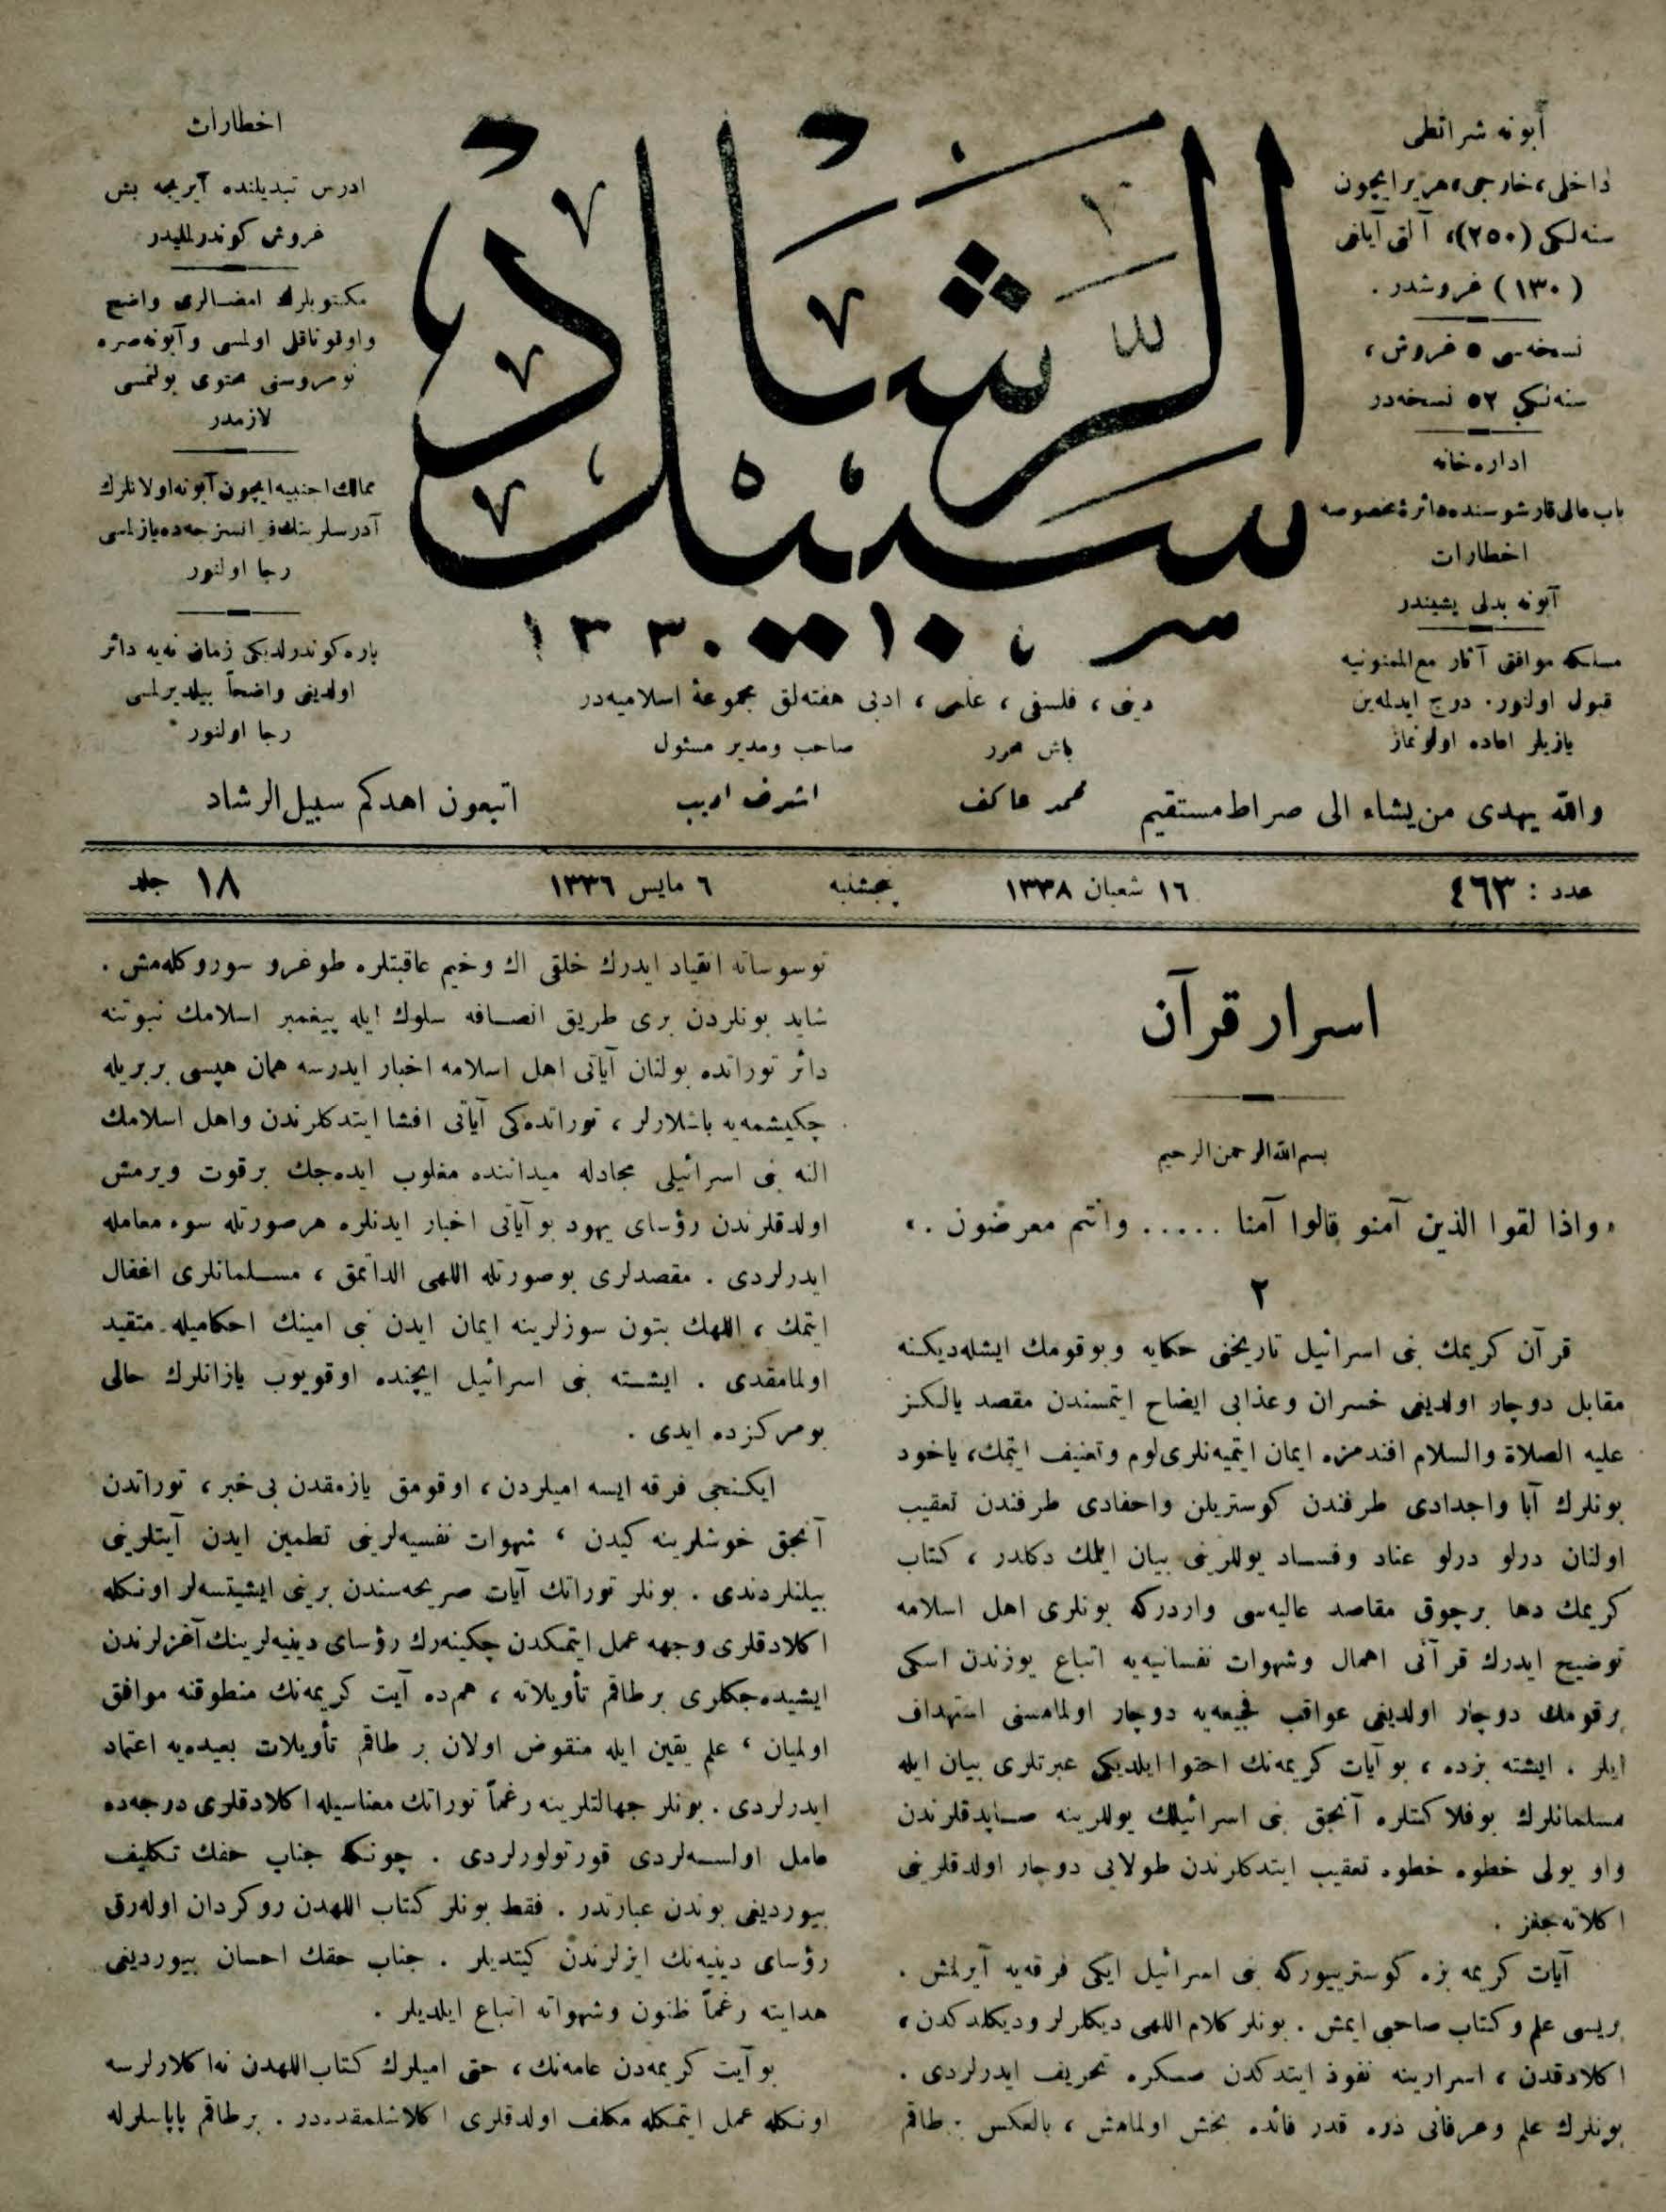 آبونه شرائطی
داخلی، خارجی، هر یر ایچون
سنه‌لكی (٢٥٠)، آلتی آیلغی
(١٣٠) غروشدر .
نسخه‌سی ٥ غروش،
سنه‌لكی ٥٢ نسخه‌در
اداره‌خانه
باب عالی قارشوسنده دائرۀ مخصوصه
اخطارات
آبونه بدلی پشیندر
مسلكه موافق آثار مع الممنونیه
قبول اولنور. درج ایدلمه‌ین
یازیلر اعاده اولونماز
سبیل الرشاد
١٣٣٠
دینی ، فلسفی ، علمی ، ادبی هفته‌لق مجموعۀ اسلامیه‌در
باش محرر
صاحب ومدیر مسئول
محمد عاكف
اشرف ادیب
اخطارات
ادرس تبدیلنده آیریجه بش
غروش كوندرلملیدر
مكتوبلرك امضالری واضح
واوقوناقلی اولمسی وآبونه صره
نومروسنی محتوی بولنمسی
لازمدر
ممالك اجنبیه ایچون آبونه اولانلرك
آدرسلرینك فرانسزجه‌ده یازلمسی
رجا اولنور
پاره كوندرلدیكی زمان نه‌یه دائر
اولدیغی واضحاً بیلدیرلمسی
رجا اولنور
والله یهدی من یشاء الی صراط مستقیم
اتبعون اهدكم سبیل الرشاد
عدد : ٤٦٣
١٦ شعبان ١٣٣٨
پنجشنبه
٦ مایس ١٣٣٦
جلد ١٨
اسرار قرآن
بسم الله الرحمن الرحیم
«واذا لقوا الذین آمنو قالوا آمنا ..... وانتم معرضون .»
٢
قرآن كریمك بنی اسرائیل تاریخنی حكایه وبوقومك ایشله‌دیكنه
مقابل دوچار اولدیغی خسران وعذابی ایضاح ایتمسندن مقصد یالكز
علیه الصلاة والسلام افندمزه ایمان ایتمیه‌نلری لوم وتعنیف ایتمك، یاخود
بونلرك آبا واجدادی طرفندن كوستریلن واحفادی طرفندن تعقیب
اولنان درلو درلو عناد وفساد یوللرینی بیان ایلمك دكلدر ، كتاب
كریمك دها برچوق مقاصد عالیه‌سی واردركه بونلری اهل اسلامه
توضیح ایدرك قرآنی اهمال وشهوات نفسانیه‌یه اتباع یوزندن اسكی
برقومك دوچار اولدیغی عواقب فجیعه‌یه دوچار اولمامسنی استهداف
ایلر . ایشته بزده ، بو آیات كریمه‌نك احتوا ایلدیكی عبرتلری بیان ایله
مسلمانلرك بوفلاكتلره آنجق بنی اسرائیلك یوللرینه صاپدقلرندن
واو یولی خطوه خطوه تعقیب ایتدكلرندن طولایی دوچار اولدقلرینی
اكلاته‌جغز .
آیات كریمه بزه كوستریبوركه بنی اسرائیل ایكی فرقه‌یه آیرلمش .
بریسی علم وكتاب صاحبی ایمش . بونلر كلام اللهی دیكلرلر ودیكلدكدن ،
اكلادقدن ، اسرارینه نفوذ ایتدكدن صكره تحریف ایدرلردی .
بونلرك علم وعرفانی ذره قدر فائده بخش اولمامش ، بالعكس بر طاقم
توسوساته انقیاد ایدرك خلقی اك وخیم عاقبتلره طوغرو سوروكله‌مش .
شاید بونلردن بری طریق انصافه سلوك ایله پیغمبر اسلامك نبوتنه
دائر توراتده بولنان آیاتی اهل اسلامه اخبار ایدرسه همان هپسی بربریله
چكیشمه‌یه باشلارلر ، توراتده‌كی آیاتی افشا ایتدكلرندن واهل اسلامك
النه بنی اسرائیلی مجادله میداننده مغلوب ایده‌جك برقوت ویرمش
اولدقلرندن رؤسای یهود بو آیاتی اخبار ایدنلره هرصورتله سوء معامله
ایدرلردی . مقصدلری بوصورتله اللهی الداتمق ، مسلمانلری اغفال
ایتمك ، اللهك بتون سوزلرینه ایمان ایدن نبی امینك احكامیله متقید
اولمامقدی . ایشته بنی اسرائیل ایچنده اوقویوب یازانلرك حالی
بومركزده ایدی .
ایكنجی فرقه ایسه امیلردن، اوقومق یازمقدن بی خبر، توراتدن
آنجق خوشلرینه كیدن ، شهوات نفسیه‌لرینی تطمین ایدن آیتلرینی
بیلنلردندی . بونلر توراتك آیات صریحه‌سندن برینی ایشیتسه‌لر اونكله
اكلادقلری وجهه عمل ایتمكدن چكینه‌رك رؤسای دینیه‌لرینك آغزلرندن
ایشیده‌جكلری برطاقم تأویلاته ، هم‌ده آیت كریمه‌نك منطوقنه موافق
اولمیان ، علم یقین ایله منقوض اولان بر طاقم تأویلات بعیده‌یه اعتماد
ایدرلردی . بونلر جهالتلرینه رغماً توراتك معناسیله اكلادقلری درجه‌ده
عامل اولسه‌لردی قورتولورلردی . چونكه جناب حقك تكلیف
بیوردیغی بوندن عبارتدر . فقط بونلر كتاب اللهدن روكردان اوله‌رق
رؤسای دینیه‌نك ایزلرندن كیتدیلر . جناب حقك احسان بیوردیغی
هدایته رغماً ظنون وشهواته اتباع ایلدیلر .
بوآیت كریمه‌دن عامه‌نك ، حتی امیلرك كتاب اللهدن نه اكلارلرسه
اونكله عمل ایتمكله مكلف اولدقلری اكلاشلمقده‌در . برطاقم پاپاسلرله